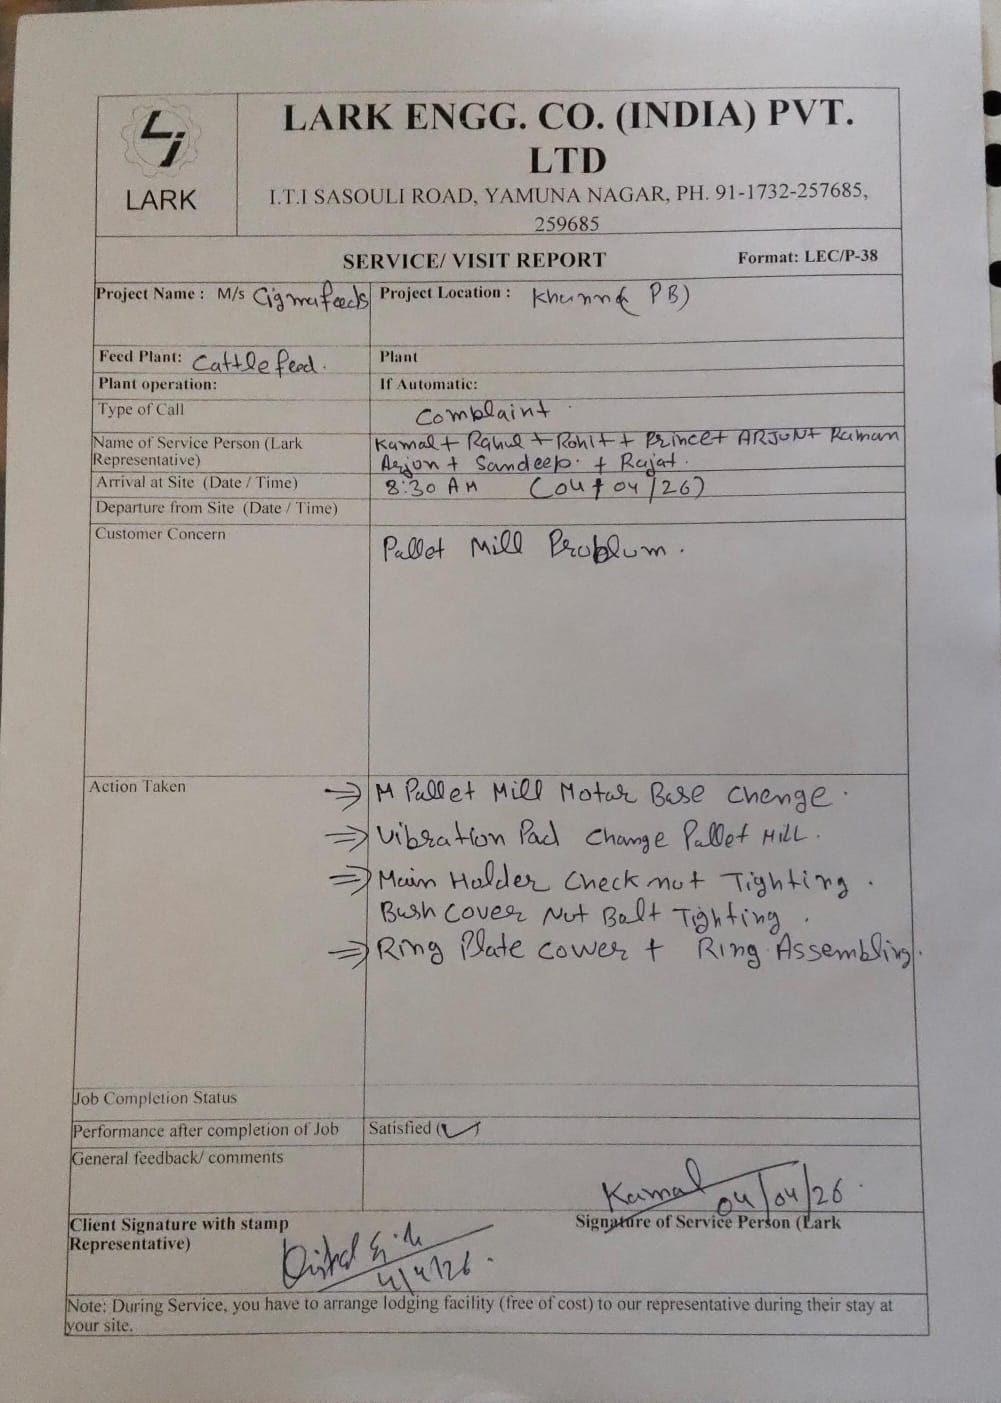 LARK
LARK ENGG. CO. (INDIA) PVT.
LTD
I.T.I SASOULI ROAD, YAMUNA NAGAR, PH. 91-1732-257685,
259685
SERVICE/ VISIT REPORT Format: LEC/P-38
Project Name : M/s Cigmafeeds Project Location : Khanna (PB)
Feed Plant: Cattle feed. Plant
Plant operation: If Automatic:
Type of Call Complaint
Name of Service Person (Lark Kamal + Rahul + Rohit + Prince + ARJUN + Raman
Representative) Arjon + Sandeep. + Rajat.
Arrival at Site (Date / Time) 8:30 AM (04/04/26)
Departure from Site (Date / Time)
Customer Concern
Pallet Mill Problum.
Action Taken ⇒ M Pallet Mill Motar Base chenge.
⇒ Vibration Pad change Pallet MILL.
⇒ Main Holder Check nut Tighting.
Bush Cover Nut Balt Tighting.
⇒ Ring Plate Cower + Ring Assembling.
Job Completion Status
Performance after completion of Job Satisfied (✓)
General feedback/ comments
Kamal 04/04/26.
Client Signature with stamp Signature of Service Person (Lark
Representative)
4/4/26.
Note: During Service, you have to arrange lodging facility (free of cost) to our representative during their stay at
your site.